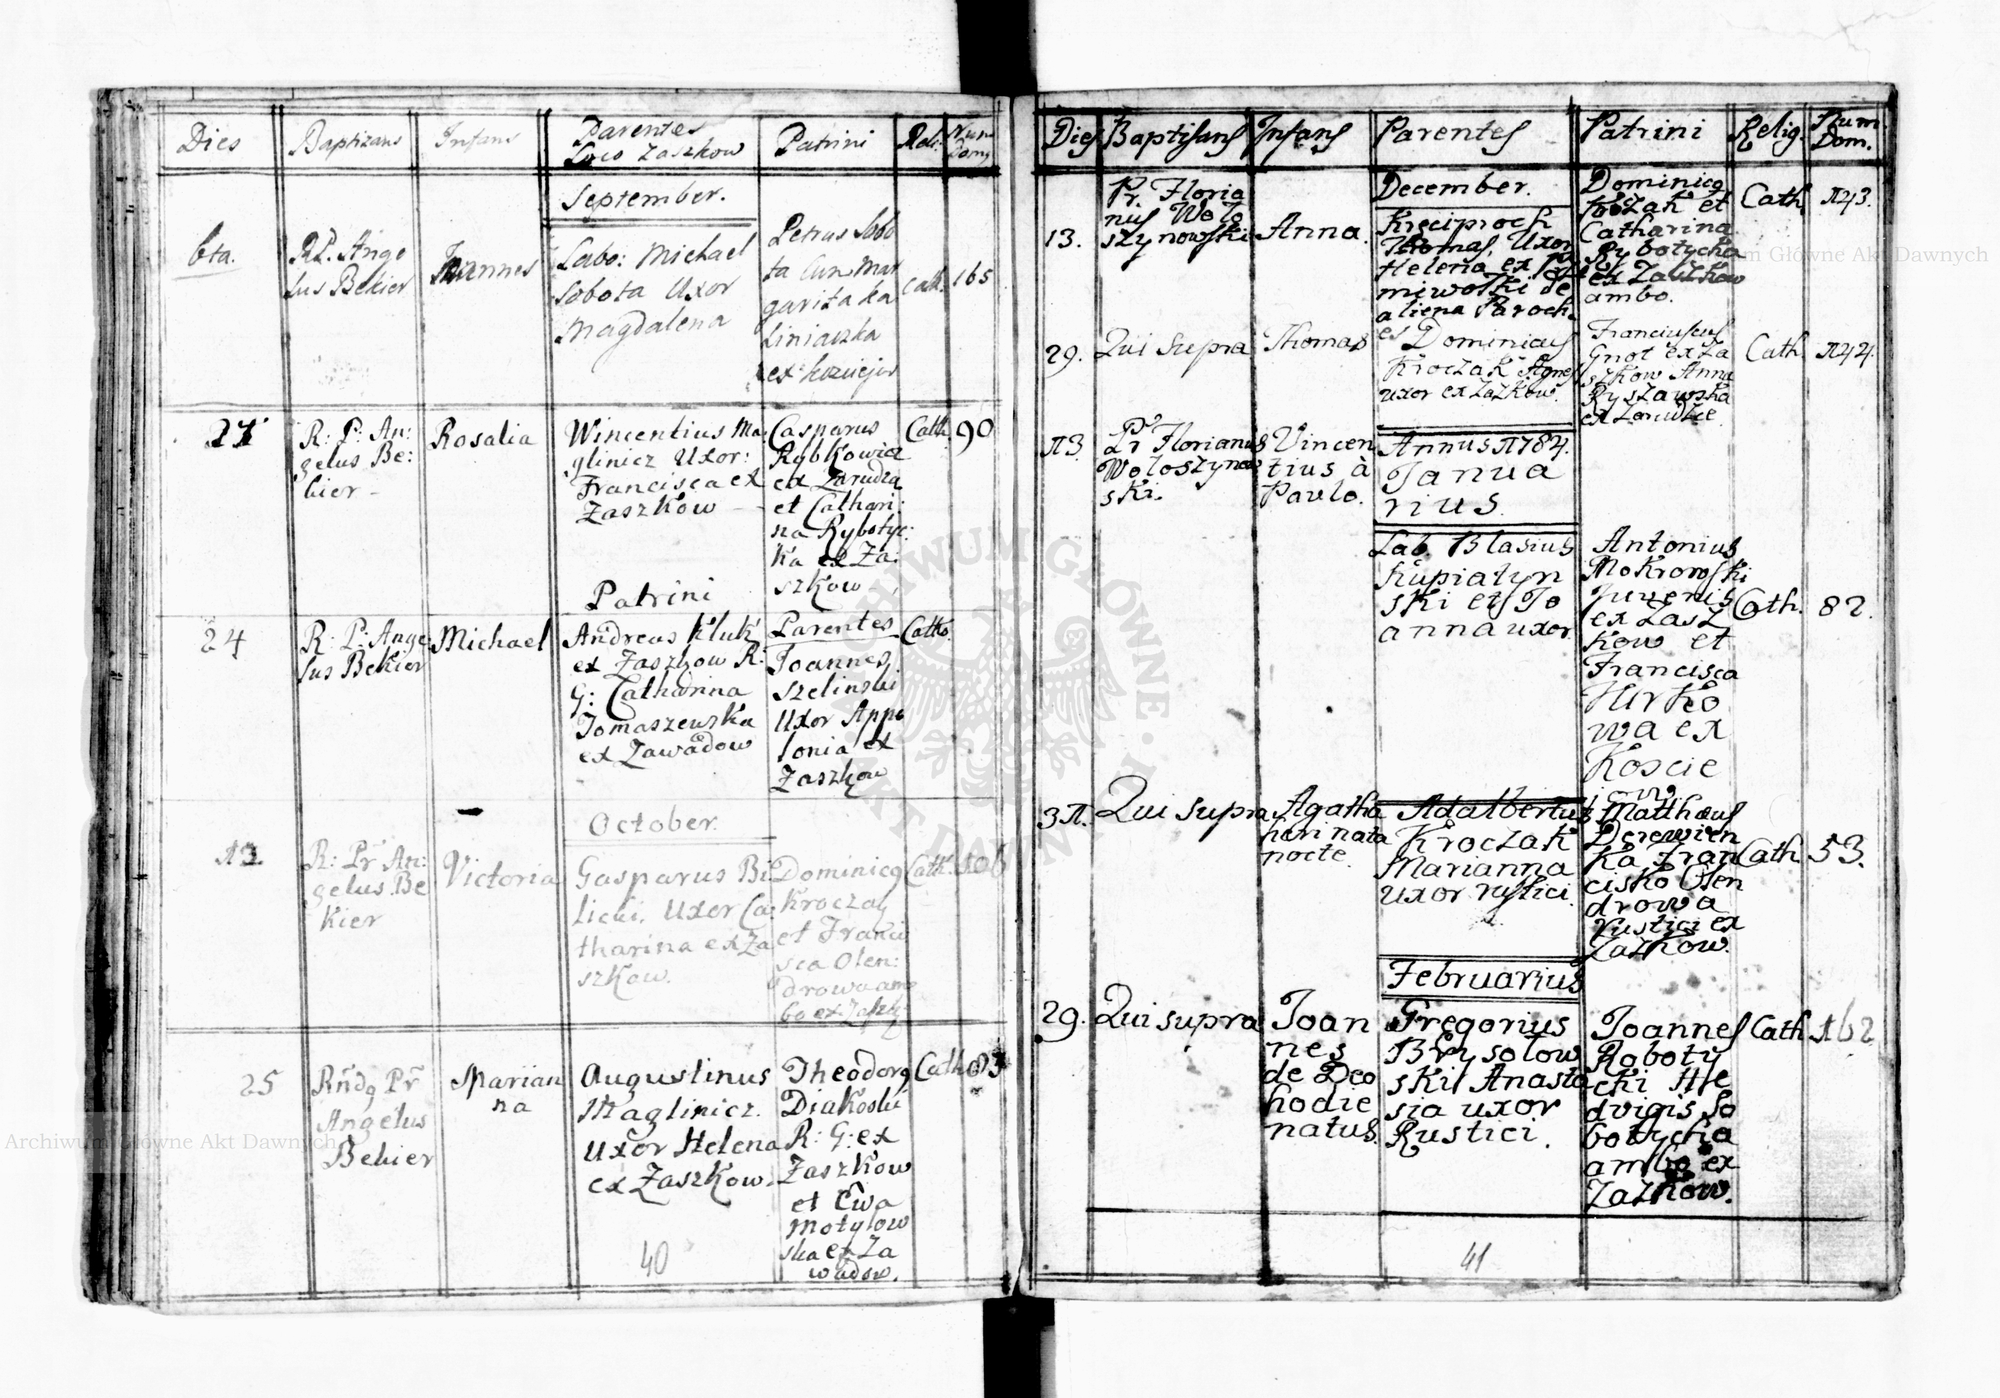 Dies
Baptizans
Infans
Parentes
Loco Zaszkow
Patrini
Reli:
Num
Domy
September.
6ta.
R.P. Ange
lus Bekier
Joannes
Labo: Michael
Sobota Uxor
Magdalena
Petrus Sobo
ta Cum Mar
garita ka
liniaczka
Cath.
165
21
R: P: An:
gelus Be:
kier -
Rosalia
Wincentius Ma
glinicz Uxor:
Francisca ex
Zaszkow
Casparus
Rybkowicz
ex Zarudza
et Cathari:
na Rybotyc:
ka ex Za
szkow
Cath.
90
Patrini
24
R: P: Ange
lus Bekier
Michael
Andreas Kluk
ex Zaszkow R:
G: Catharina
Tomaszewska
ex Zawadow
Parentes
Joannes
Szelinski
Uxor Appo
lonia ex
Zaszkow
Catho.
October.
R: Pr An:
gelus Be
kier
Victoria
Gasparus Bi
licki. Uxor Ca
tharina ex Za
szkow.
Dominicq
Kroczay
et Franci
sca Olen:
drowa am
bo ex Zaszk
Cath.
106
25
Rndq Pr
Angelus
Bekier
Marian
na
Augustinus
Maglinicz.
Uxor Helena
ex Zaszkow.
Theodorq
Diakoski
R: G: ex
Zaszkow
et Ewa
Motylow
ska ex Za
wadow.
Cath.
83
40
Dies
Baptisans
Infans
Parentes
Patrini
Relig.
Num.
Dom.
December.
13.
Pr. Floria
nus Wolo
szynowski
Anna.
Kręciproch
Thomas, Uxor
Helena ex
aliena Paroch.
Dominicq
Kroczak et
Catharina
Rybotycha
ex Zaszkow
ambo.
Cath.
143.
29.
Qui supra
Thomas
Dominicus
Kroczak Agnes
uxor ex Zazkow.
Franciscus
Gnot ex Za
szkow Anna
Ryszawska
ex Zarudce
Cath.
144.
Annus 1784.
Janua
rius.
13.
Pr Florianus
Wołoszynow
ski.
Vincen
tius à
Paulo.
Lab. Blasius
Kupiatyn
ski et Jo
anna uxor
Antonius
Mokrowski
Juvenis
ex Zasz
kow et
Francisca
Hirko
wa ex
Koscie
jow
Cath.
82.
31.
Qui supra
Agatha
heri nata
nocte.
Adalbertus
Kroczak
Marianna
uxor rustici.
Matthæus
Derewien
ka Fran
ciska Olen
drowa
rustici ex
Zazkow.
Cath.
53.
Februarius
29.
Qui supra
Joan
nes
de Deo
hodie
natus.
Gregorius
Brysołow
ski Anasta
sia uxor
Rustici.
Joannes
Roboty
cki He
dvigis So
botycha
ambo ex
Zazkow.
Cath
162
41
ARCHIWUM GŁÓWNE · AKT DAWNYCH ·
Archiwum Główne Akt Dawnych
Archiwum Główne Akt Dawnych